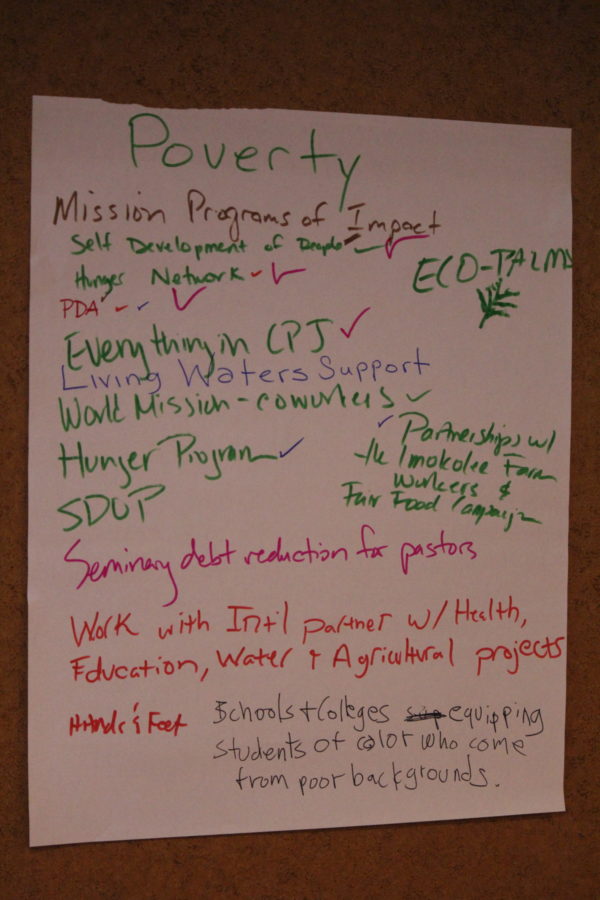 Poverty
Mission Programs of Impact
Self Development of People
Hunger Network
ECO-PALMS
PDA
Everything in CPJ
Living Waters Support
World Mission - coworkers
Partnerships w/
Hunger Program
the Imokolee Farm
Workers &
SDOP
Fair Food Campaign
Seminary debt reduction for pastors
Work with Int'l partner w/ Health,
Education, Water + Agricultural projects
Hands & Feet
Schools + Colleges equipping
students of color who come
from poor backgrounds.